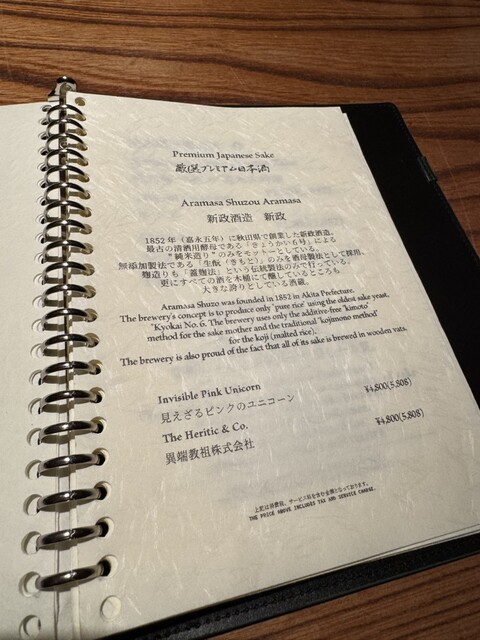 Premium Japanese Sake
厳選プレミアム日本酒
Aramasa Shuzou Aramasa
新政酒造 新政
1852年(嘉永五年)に秋田県で創業した新政酒造。
最古の清酒用酵母である「きょうかい6号」による
"純米造り"のみをモットーとしている。
無添加製法である「生酛(きもと)」のみを酒母製法として採用、
麹造りも「蓋麹法」という伝統製法のみで行っている。
更にすべての酒を木桶にて醸しているところも
大きな誇りとしている酒蔵。
Aramasa Shuzo was founded in 1852 in Akita Prefecture.
The brewery's concept is to produce only 'pure rice' using the oldest sake yeast,
'Kyokai No. 6. The brewery uses only the additive-free 'kimoto'
method for the sake mother and the traditional 'kojimono method'
for the koji (malted rice).
The brewery is also proud of the fact that all of its sake is brewed in wooden vats.
Invisible Pink Unicorn ¥4,800(5,808)
見えざるピンクのユニコーン
The Heritic & Co. ¥4,800(5,808)
異端教祖株式会社
上記は消費税、サービス料を含む金額となっております。
THE PRICE ABOVE INCLUDES TAX AND SERVICE CHARGE.